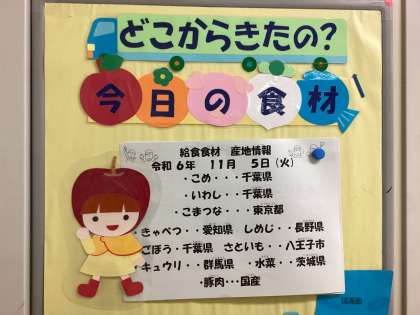 どこからきたの?
今日の食材
給食食材 産地情報
令和 6年 11月 5日(火)
・こめ・・・千葉県
・いわし・・千葉県
・こまつな・・・東京都
・きゃべつ・・愛知県 しめじ・・長野県
ごぼう・千葉県 さといも・・八王子市
・キュウリ・・群馬県 ・水菜・・茨城県
・豚肉・・・国産